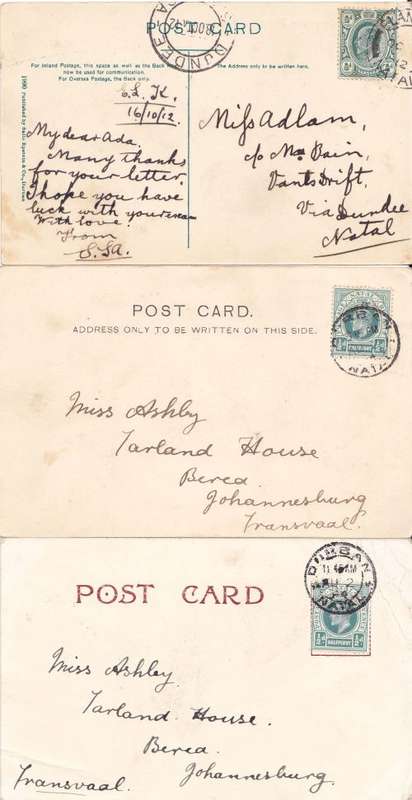 POST CARD
DUNDEE
For Inland Postage, this space as well as the Back may
now be used for communication.
For Oversea Postage, the Back only.
The Address only to be written here.
1900 Published by Sallo Epstein & Co., Durban
16/10/12.
My dear Ada,
Many thanks
for your letter.
I hope you have
luck with your exam
With love.
From
Miss Adlam,
c/o Mrs Bain,
Vants Drift,
Via Dundee
Natal
POST CARD.
ADDRESS ONLY TO BE WRITTEN ON THIS SIDE.
DURBAN
NATAL
Miss Ashley
Tarland House
Berea.
Johannesburg
Transvaal.
DURBAN
11.45 AM
NATAL
HALFPENNY
POST CARD
Miss Ashley.
Tarland. House.
Berea.
Johannesburg.
Transvaal.